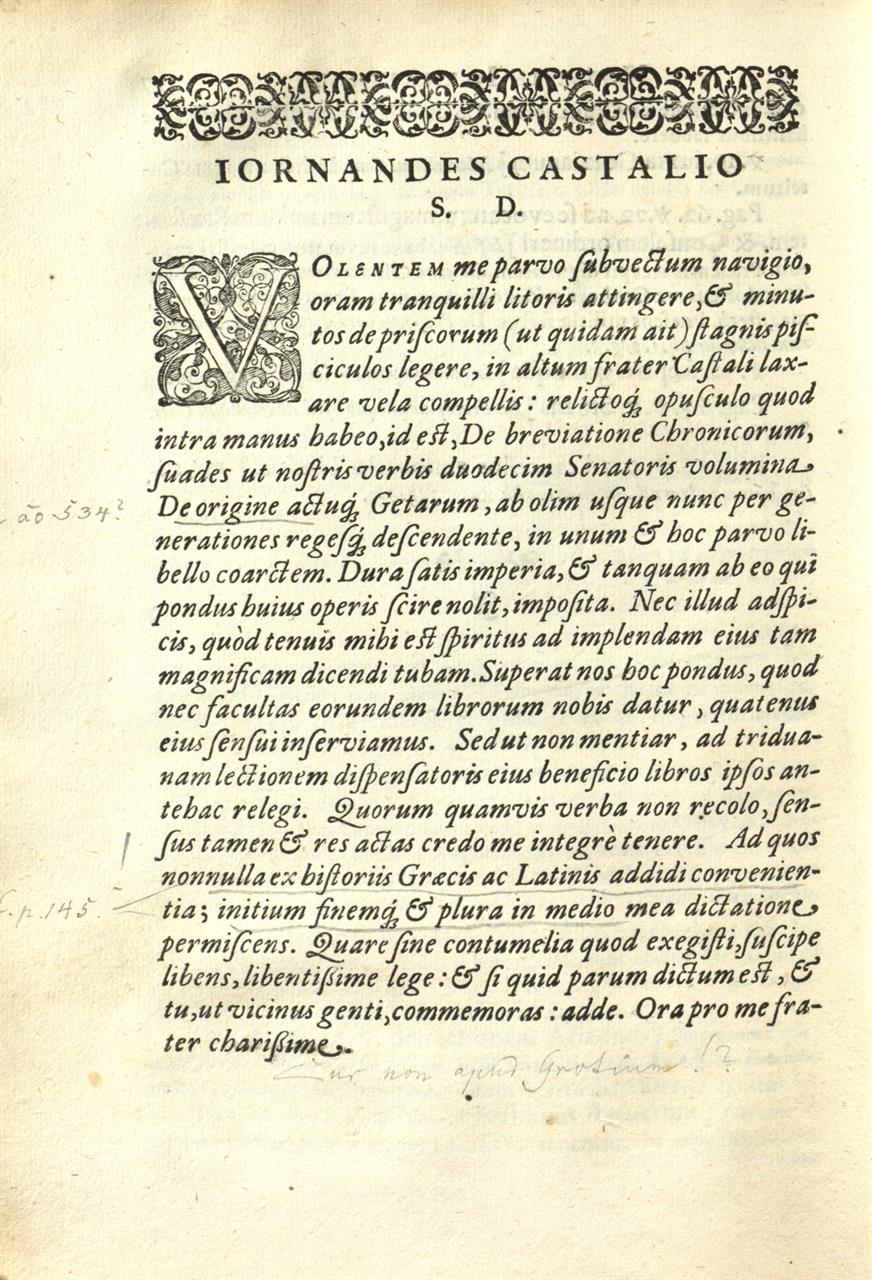 IORNANDES CASTALIO
S. D.
VOLENTEM me parvo ſubvectum navigio,
oram tranquilli litoris attingere, & minu-
tos de priſcorum (ut quidam ait) ſtagnis piſ-
ciculos legere, in altum frater Caſtali lax-
are vela compellis: relictoq́; opuſculo quod
intra manus habeo, id eſt, De breviatione Chronicorum,
ſuades ut noſtris verbis duodecim Senatoris volumina
De origine actuq́; Getarum, ab olim uſque nunc per ge-
ão 534?
nerationes regeſq́; deſcendente, in unum & hoc parvo li-
bello coarctem. Dura ſatis imperia, & tanquam ab eo qui
pondus huius operis ſcire nolit, impoſita. Nec illud adſpi-
cis, quòd tenuis mihi eſt ſpiritus ad implendam eius tam
magnificam dicendi tubam. Superat nos hoc pondus, quod
nec facultas eorundem librorum nobis datur, quatenus
eius ſenſui inſerviamus. Sed ut non mentiar, ad tridua-
nam lectionem diſpenſatoris eius beneficio libros ipſos an-
tehac relegi. Quorum quamvis verba non recolo, ſen-
ſus tamen & res actas credo me integrè tenere. Ad quos
nonnulla ex hiſtoriis Græcis ac Latinis addidi convenien-
p. 145.
tia; initium finemq́; & plura in medio mea dictatione
permiſcens. Quare ſine contumelia quod exegiſti, ſuſcipe
libens, libentißime lege: & ſi quid parum dictum eſt, &
tu, ut vicinus genti, commemoras: adde. Ora pro me fra-
ter charißime.
Cur non apud Grotium!?